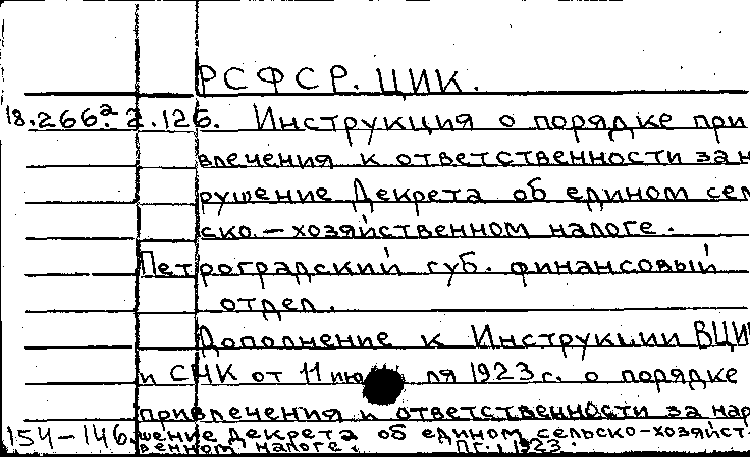 РСФСР. ЦИК.
18.266.² 2.126. Инструкция о порядке при
влечения к ответственности за н
рушение Декрета об едином сель
ско.-хозяйственном налоге.
Петроградский губ. финансовый
отдел.
Дополнение к Инструкции ВЦИ
и СНК от 11 июля 1923 г. о порядке
привлечения к ответственности за нар
154-146. шение Декрета об едином сельско-хозяйст-
венном налоге. Пг., 1923.